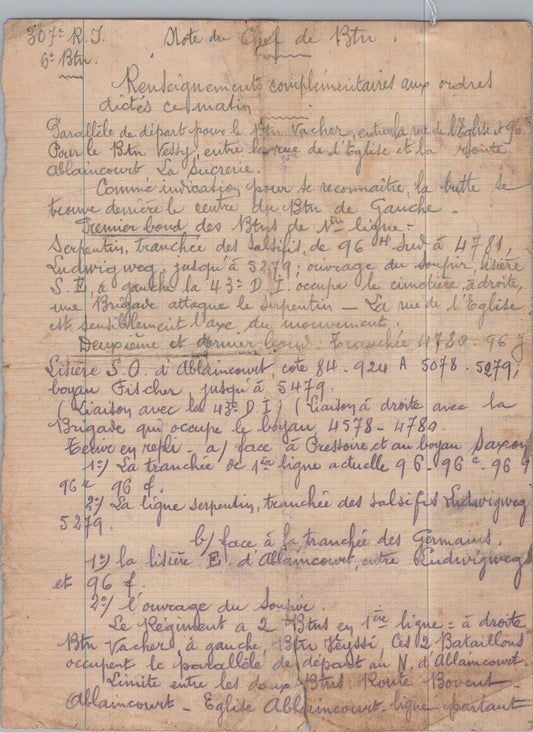 307e R.I. Note du Chef de Btn.
6e Btn.
Renseignements complémentaires aux ordres
dictés ce matin.
Parallèle de départ pour le Btn Vacher, entre la rue de l'Eglise et 96
Pour le Btn Vessy, entre la rue de l'Eglise et la route
Ablaincourt La Sucrerie.
Comme indication pour se reconnaître, la butte se
trouve derrière le centre du Btn de Gauche.
Premier bond, des Btns de 1ère ligne =
Serpentin, tranchée des Salsifis, de 96 H Sud à 4781,
Ludwigweg jusqu'à 5279; ouvrage du Soupir, lisière
S.E, à gauche la 43e D.I. occupe le cimetière, à droite,
une Brigade attaque le Serpentin - La rue de l'Eglise
est sensiblement l'axe du mouvement.
Deuxième et dernier bond: Tranchée 4780-96 J
Lisière S.O. d'Ablaincourt, cote 84-924 A 5078-5279;
boyau Fischer jusqu'à 5479.
(Liaison avec la 43e D.I) (Liaison à droite avec la
Brigade qui occupe le boyau 4578-4780.
en repli - a/ face à Pressoire et au boyau Saxon
1°) La tranchée de 1ère ligne actuelle 96-96c-96 g
96e 96 f.
2°) La ligne serpentin, tranchée des salsifis Ludwigweg
5279.
b/ face à la tranchée des Germains.
1°) la lisière E. d'Ablaincourt, entre Ludwigweg
et 96 f.
2°) l'ouvrage du Soupir.
Le Régiment a 2 Btns en 1ère ligne = à droite
Btn Vacher, à gauche, Btn Veyssi, Ces 2 Bataillons
occupent le parallèle de départ au N. d'Ablaincourt.
Limite entre les deux Btns Route Bovent-
Ablaincourt - Eglise Ablaincourt ligne partant